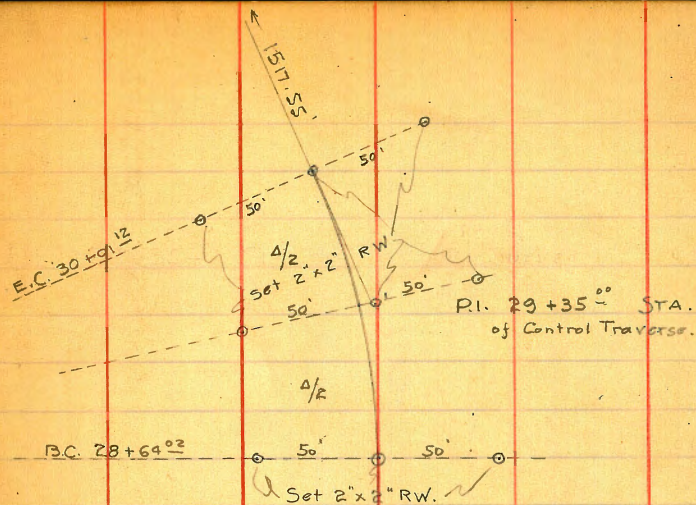 1517.55'
50'
50'
E.C. 30+01 12
Δ/2
RW.
Set 2"x2"
50'
50'
P.I. 29+35 00 STA.
of Control Traverse.
Δ/2
B.C. 28+64 02
50'
50'
Set 2"x2" RW.